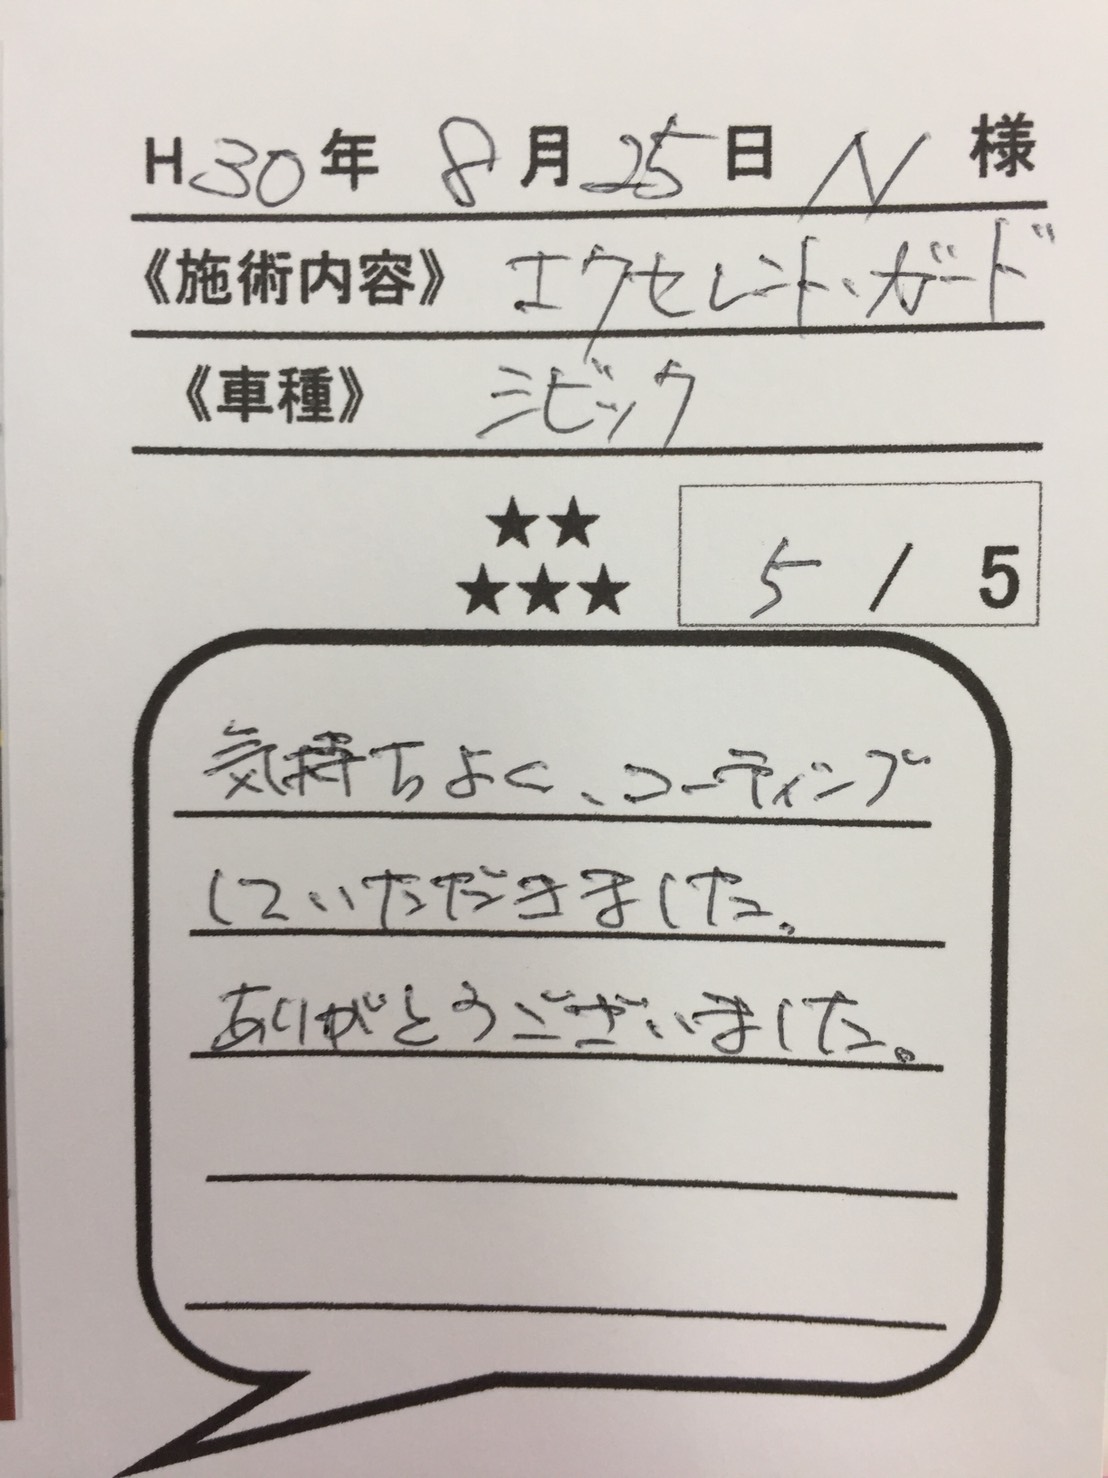 H30年 8月25日 N 様
《施術内容》 エクセレント、ガード
《車種》 シビック
★★
★★★ 5 / 5
気持ちよく、コーティング
していただきました。
ありがとうございました。